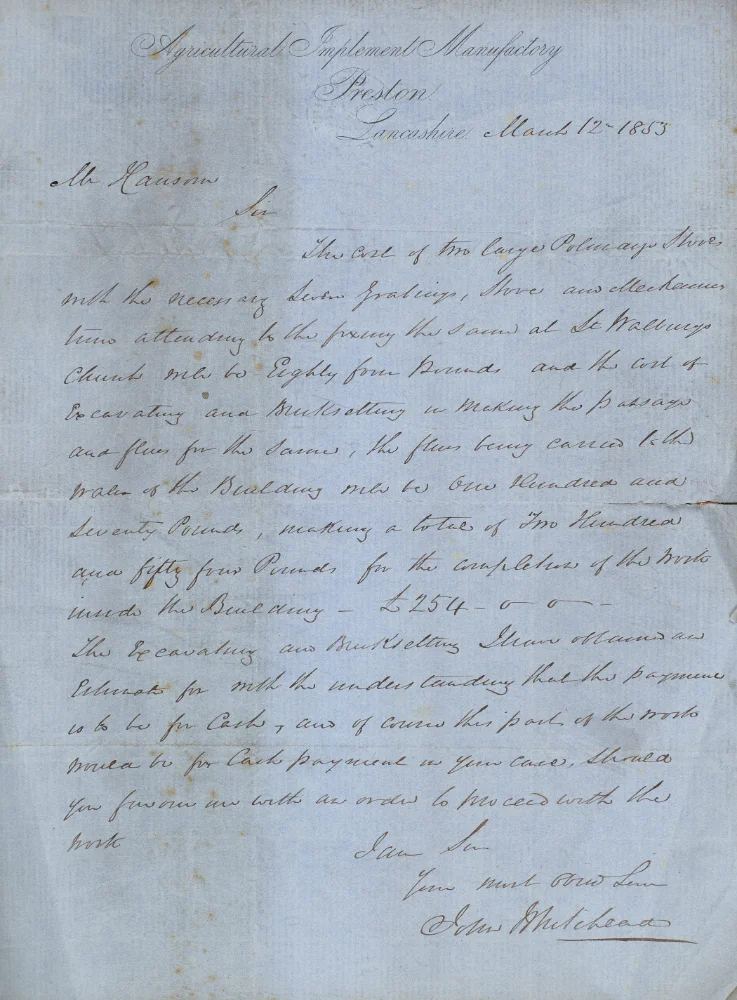 Agricultural Implement Manufactory
Preston
Lancashire March 12 - 1853
Mr Hansom
Sir
The cost of two large Polmaise Stoves
with the necessary Seven Gratings, Stove and Mechanics
time attending to the fixing the same at St Walburgs
Church will be Eighty four Pounds and the cost of
Excavating and Bricksetting in Making the passage
and flues for the same, the flues being carried to the
Walls of the Building will be One Hundred and
Seventy Pounds, making a total of Two Hundred
and fifty four Pounds for the completion of the Work
inside the Building - £254 - 0 - 0 -
The Excavating and Bricksetting I have obtained an
Estimate for with the understanding that the payment
is to be for Cash, and of course this part of the work
would be for Cash payment in your case, should
you favour me with an order to proceed with the
work
I am Sir
Your most obed Serv
John Whitehead